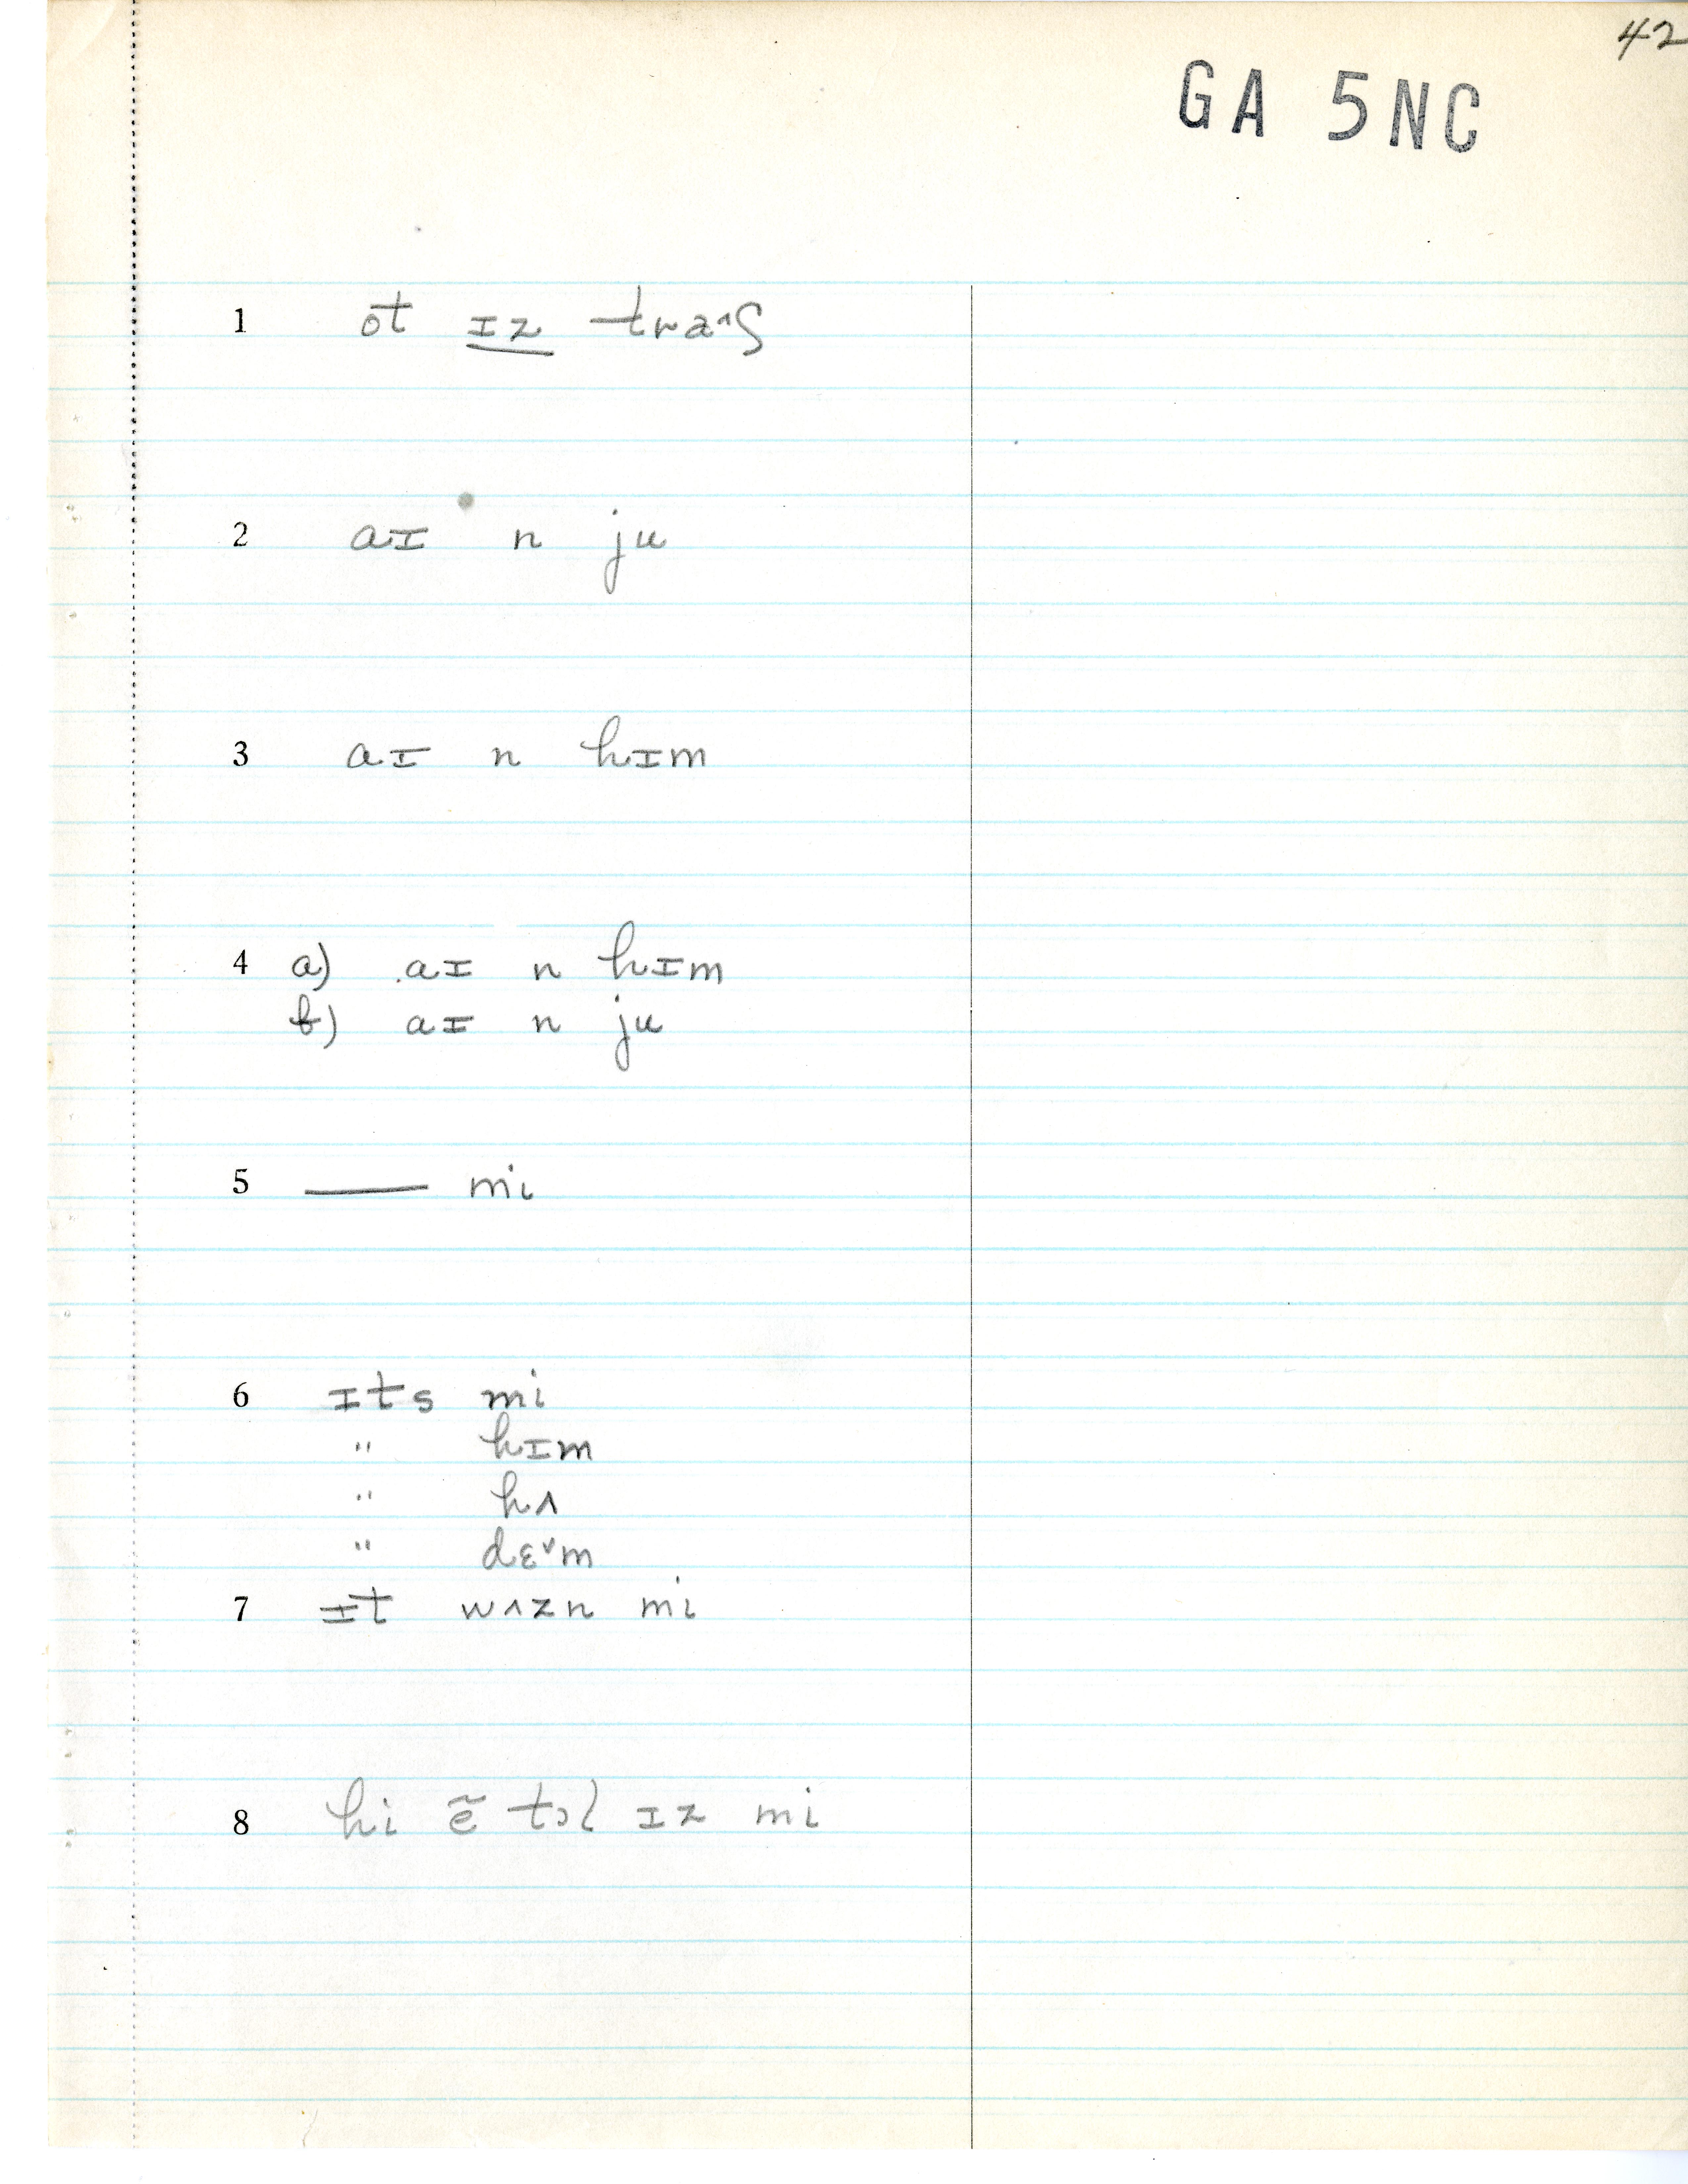 42
GA 5NC
1 ot ɪz traˆʃ
2 aɪ n ju
3 aɪ n hɪm
4 a) aɪ n hɪm
b) aɪ n ju
5 —— mi
6 ɪts mi
" hɪm
" hʌ
" dɛ˅m
7 ɪt wʌzn mi
8 hi ẽ tɔl ɪz mi